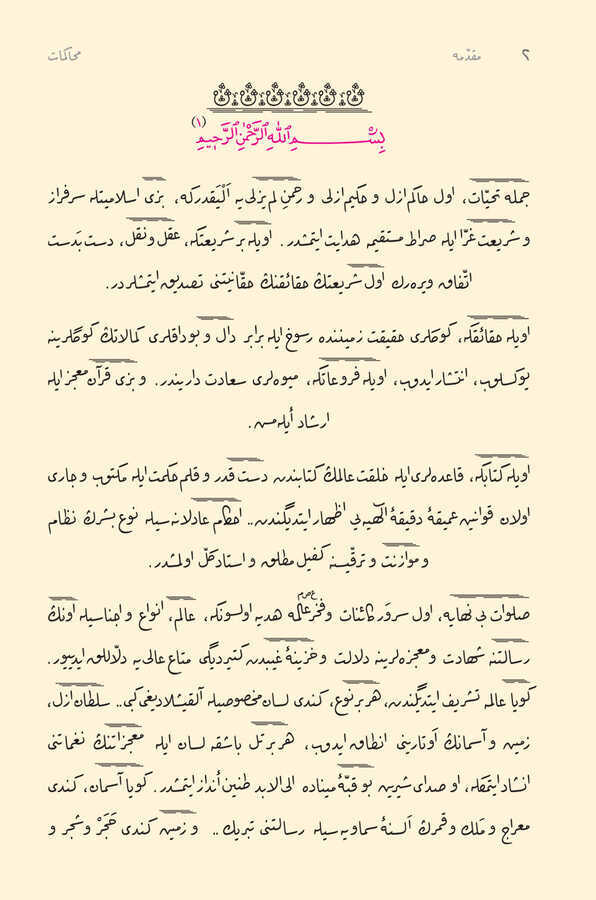 ٢ مقدّمه محاكمات
بِسْمِ اللّٰهِ الرَّحْمٰنِ الرَّحِيمِ (١)
جمله تحيّات، اول حاكم ازل و حكيم ازلى و رحمن لم يزلى يه اَلْيَقدركه، بزى اسلاميتله سرفراز
و شريعت غرّا ايله صراط مستقيمه هدايت ايتمشدر. اويله بر شريعتكه، عقل و نقل، دست بَدست
اتّفاق ويره رك اول شريعتڭ حقائقنڭ حقّانيتنى تصديق ايتمشلردر.
اويله حقائقكه، كوكلرى حقيقت زميننده رسوخ ايله برابر دال و بوداقلرى كمالاتڭ كوكلرينه
يوكسلوب، انتشار ايدوب، اويله فروعاتكه، ميوه لرى سعادت دارَيندر. و بزى قرآن معجز ايله
ارشاد أيله مش.
اويله كتابكه، قاعده لرى ايله خلقت عالمڭ كتابندن دست قدر و قلم حكمت ايله مكتوب و جارى
اولان قوانين عميقۀ دقيقۀ الٰهيه يى اظهار ايتديگندن.. احكام عادلانه سيله نوع بشرڭ نظام
و موازنت و ترقّيسنه كفيل مطلق و استاد كلّ اولمشدر.
صلوات بى نهايه، اول سرور كائنات و فخر عالمه عصم هديه اولسونكه، عالم، انواع و اجناسيله اونڭ
رسالتنه شهادت و معجزه لرينه دلالت و خزينۀ غيبدن كتيرديگى متاع عالى يه دلّاللق ايدييور.
گويا عالمه تشريف ايتديگندن، هر بر نوع، كندى لسان مخصوصيله آلقيشلاديغى كبى.. سلطان ازل،
زمين و آسمانڭ أوتارينى انطاق ايدوب، هر بر تل باشقه لسان ايله معجزاتنڭ نغماتنى
انشاد ايتمكله، او صداى شيرين بو قبّۀ ميناده الى الابد طنين أنداز ايتمشدر. گويا آسمان، كندى
معراج و مَلك و قمرڭ اَلسنۀ سماويه سيله رسالتنى تبريك.. و زمين كندى حَجَر و شجر و